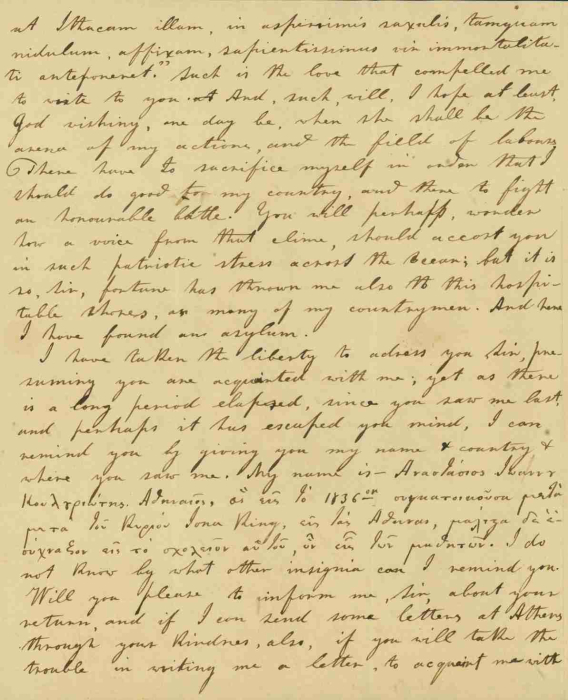 ut Ithacam illam, in asperrimis saxulis, tamquam
nidulum, affixam, sapientissimus vir immortalita-
ti anteponeret." Such is the love that compelled me
to write to you at And, such, will, I hope at least,
God vishing, one day be, when she shall be the
arena of my actions, and the fielld of labours
There have to sacrifice myself in ordar that I
should do good to my country, and there to fight
an honourable battle. You will perhaps, wonder
how a voice from that clime, should accost you
in such patriotic stress across the ocean; but it is
so, Sir, fortune has thrown me also to this hospi-
table shores, as many of my countrymen. And here
I have found an asylum.
I have taken the liberty to adress you Sir, pre-
suming you are acquinted with me; yet as there
is a long period elapsed, since you saw me last
and perhaps it has escuped you mind, I can
remind you by giving you my name & country &
where you saw me. My name is – Αναστάσιος
Ἀθηναῖος, εἰς τὸ 1836
μετα τοῦ Κυρίου Ιονα Κίνγ, εἰς τὰς Αθήνας,
εἰς το σχολεῖον αὐτοῦ, ὢν εἷς τῶν μαθητῶν. I do
not know by what other insignia can I remind you.
Will you please to inform me, Sir, about your
return, and if I can send some letters at Athens
through your kindnes, also, if you will take the
trouble in writing me a letter, to acquaint me with